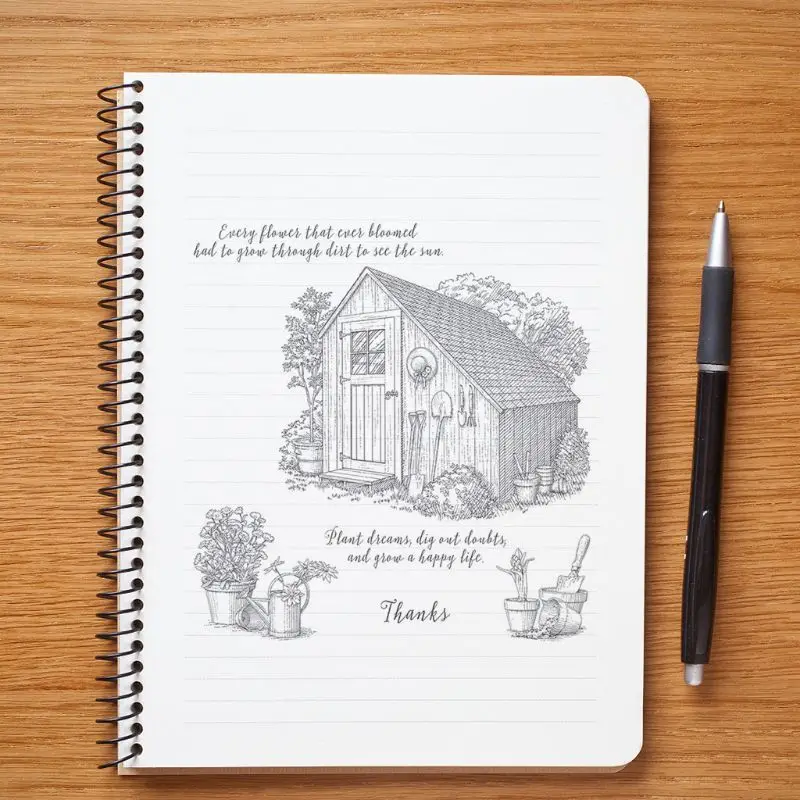 Every flower that ever bloomed
had to grow through dirt to see the sun.
Plant dreams, dig out doubts,
and grow a happy life.
Thanks